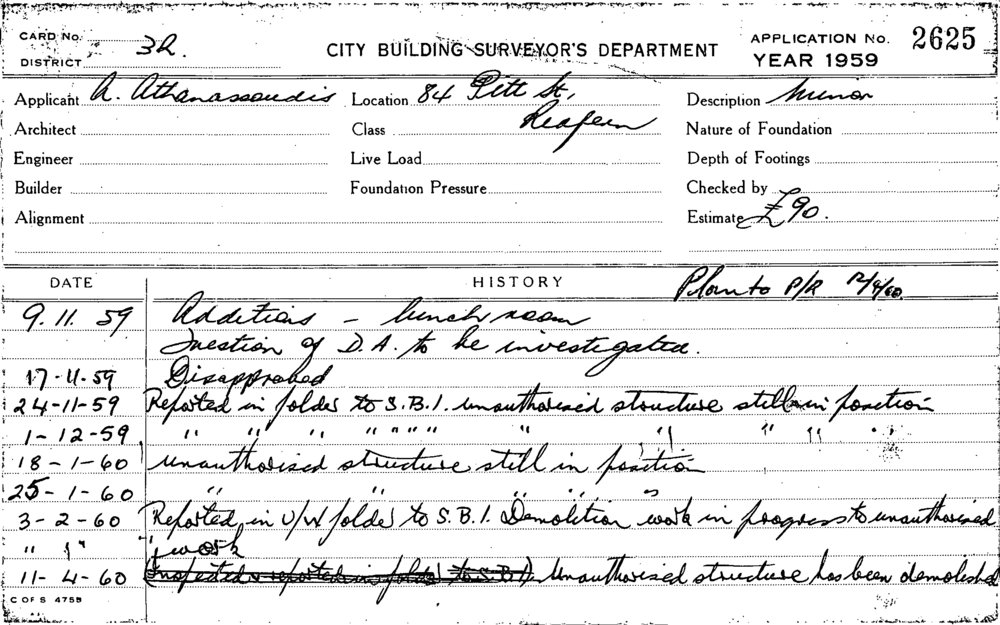 CARD No. 3R
DISTRICT
CITY BUILDING SURVEYOR'S DEPARTMENT
APPLICATION No. 2625
YEAR 1959
Applicant A. Athanassoudis
Location 84 Pitt St,
Redfern
Description Minor
Architect
Class
Nature of Foundation
Engineer
Live Load
Depth of Footings
Builder
Foundation Pressure
Checked by
Alignment
Estimate £90.
DATE
HISTORY
Plan to P/R 12/4/60
9.11.59 Additions - lunch room
Question of D.A. to be investigated.
17-11-59 Disapproved
24-11-59 Reported in folder to S.B.I. unauthorised structure still in position
1-12-59 " " " " " " " " " " " "
18-1-60 Unauthorised structure still in position
25-1-60 " " " " "
3-2-60 Reported in U/W folder to S.B.I. Demolition work in progress to unauthorised
" " " work
11-4-60 Inspected & reported in folder to S.B.I. Unauthorised structure has been demolished
C OF S 4758